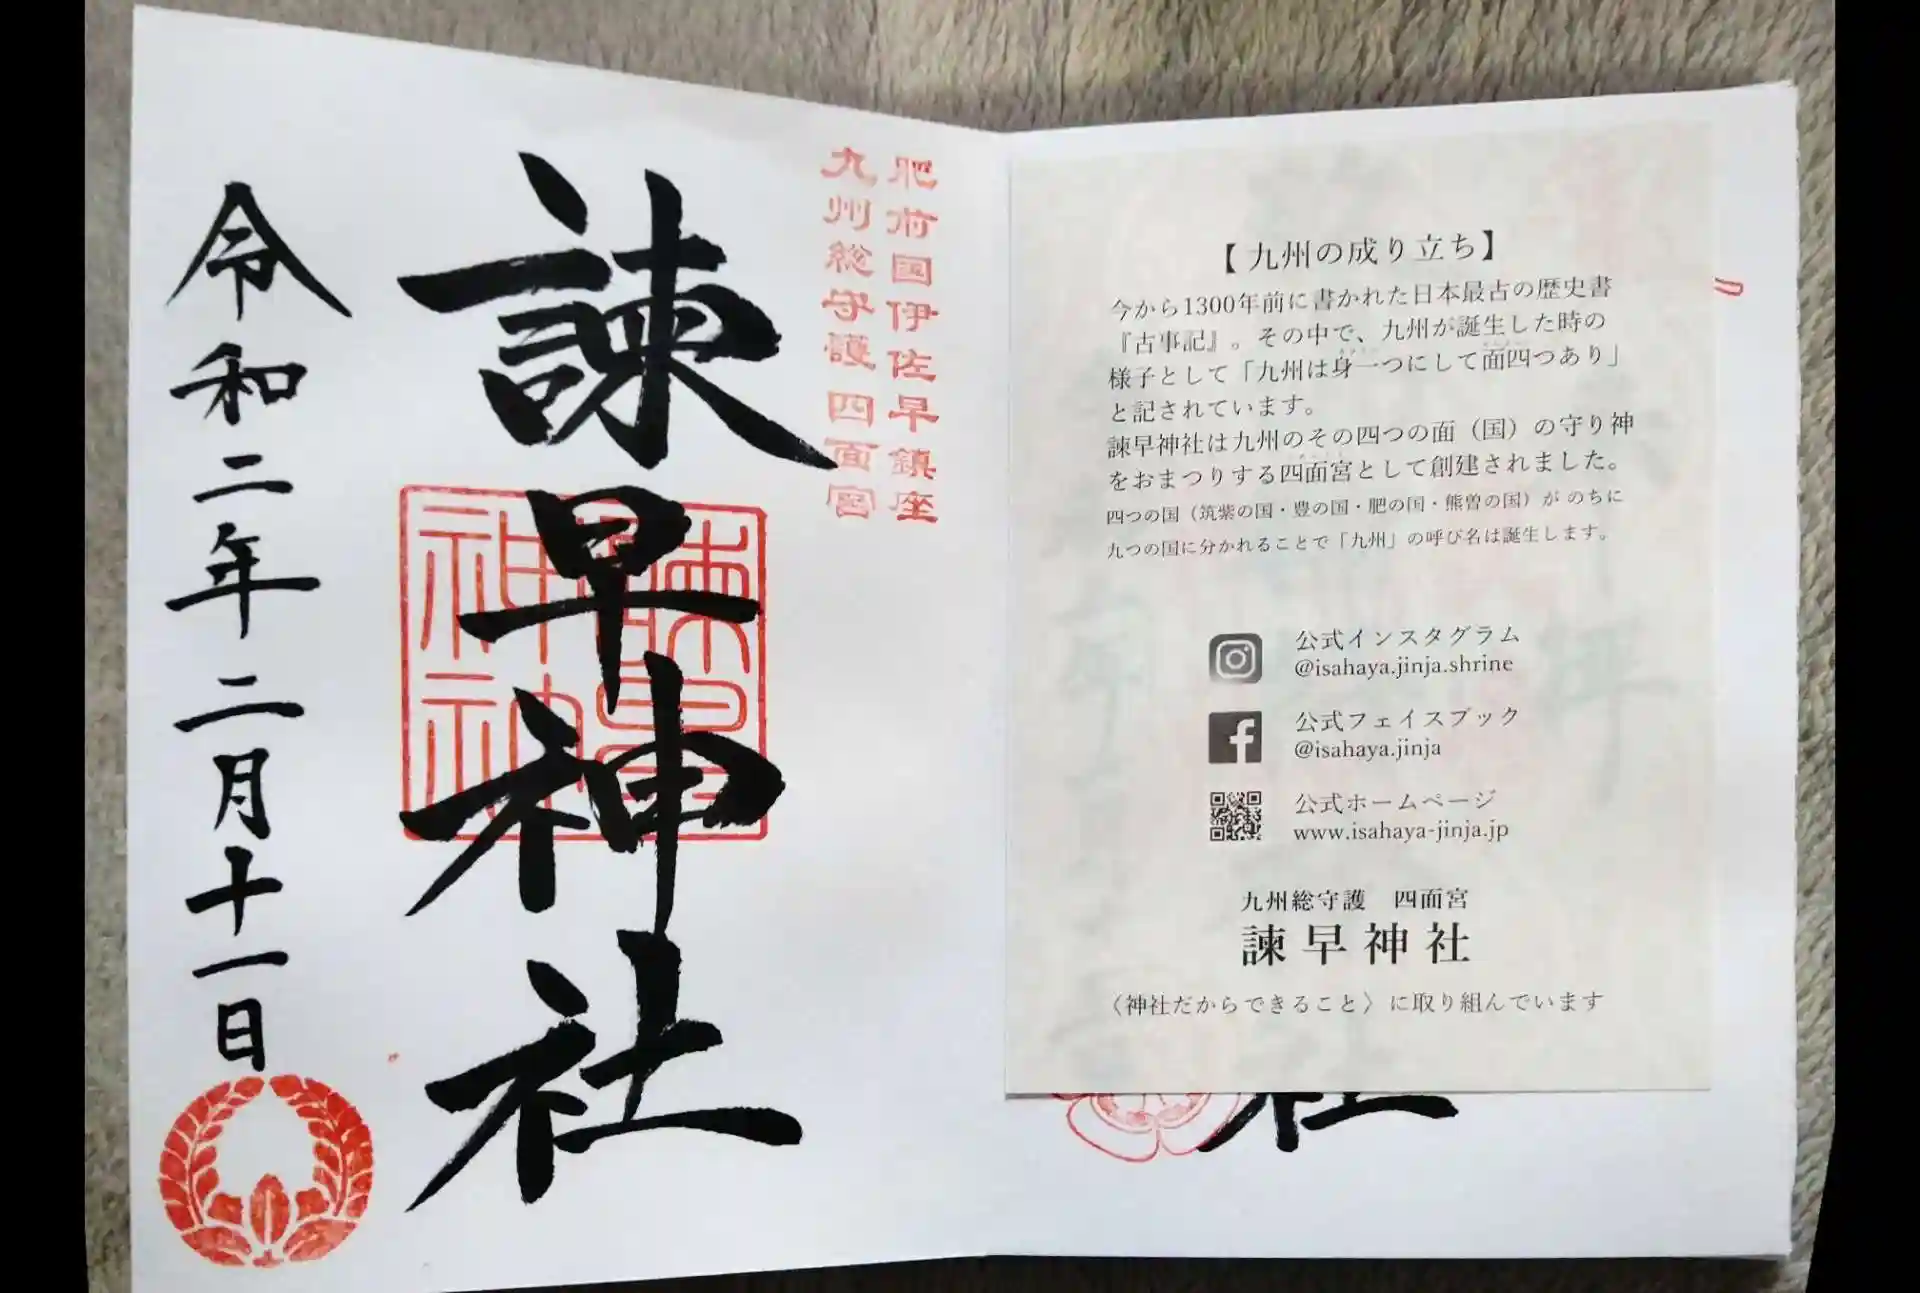 肥前国伊佐早鎮座
九州総守護四面宮
諫早神社
令和二年二月十一日
【九州の成り立ち】
今から1300年前に書かれた日本最古の歴史書
『古事記』。その中で、九州が誕生した時の
様子として「九州は身一つにして面四つあり」
と記されています。
諫早神社は九州のその四つの面（国）の守り神
をおまつりする四面宮として創建されました。
四つの国（筑紫の国・豊の国・肥の国・熊曽の国）が のちに
九つの国に分かれることで「九州」の呼び名は誕生します。
公式インスタグラム
@isahaya.jinja.shrine
公式フェイスブック
@isahaya.jinja
公式ホームページ
www.isahaya-jinja.jp
九州総守護　四面宮
諫早神社
〈神社だからできること〉に取り組んでいます
社